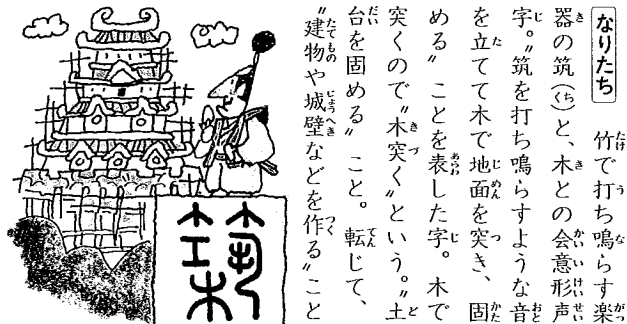 なりたち
竹で打ち鳴らす楽
器の筑(ちく)と、木との会意形声
字。〝筑を打ち鳴らすような音
を立てて木で地面を突き、固
める〟ことを表した字。木で
突くので〝木突く〟という。〝土
台を固める〟こと。転じて、
〝建物や城壁などを作る〟こと
築